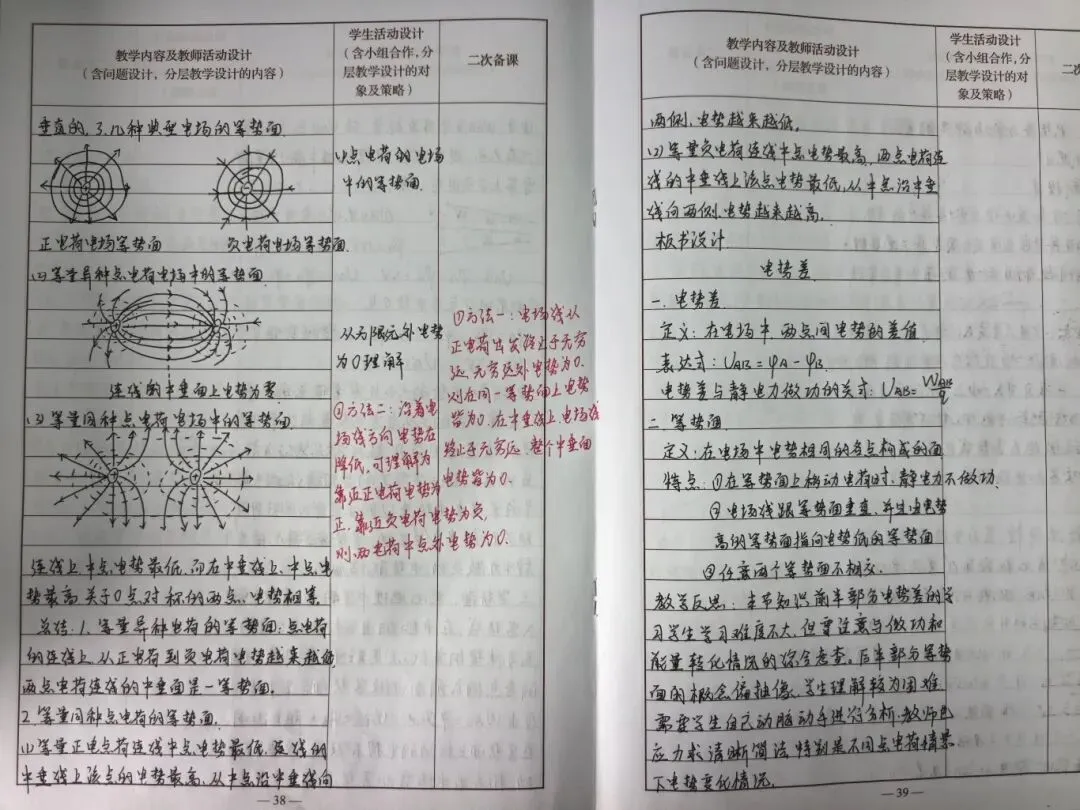 教学内容及教师活动设计
(含问题设计，分层教学设计的内容)
学生活动设计
(含小组合作，分
层教学设计的对
象及策略)
二次备课
垂直的.3.几种典型电场的等势面.
(1)点电荷的电场
中的等势面.
正电荷电场等势面 负电荷电场等势面.
(2)等量异种点电荷电场中的等势面
从无限远处电势
为0理解
连线的中垂面上电势为零.
(3)等量同种点电荷电场中的等势面
①方法一:电场线从
正电荷出发终止于无穷
远,无穷远处电势为0.
则在同一等势面上电势
皆为0.在中垂线上,电场线
终止于无穷远,整个中垂面
电势皆为0.
②方法二:沿着电
场线方向电势在
降低,可理解为
靠近正电荷电势为
正,靠近负电荷电势为负,
则两电荷中点处电势为0.
连线上,中点电势最低,而在中垂线上,中点电
势最高.关于0点对称的两点,电势相等.
总结:1.等量异种电荷的等势面:点电荷
的连线上,从正电荷到负电荷电势越来越低,
两点电荷连线的中垂面是一等势面.
2.等量同种点电荷的等势面.
(1)等量正电点荷连线中点电势最低,连线的
中垂线上该点的电势最高,从中点沿中垂线向
—38—
教学内容及教师活动设计
(含问题设计，分层教学设计的内容)
学生活动设计
(含小组合作，分
层教学设计的对
象及策略)
二次
两侧,电势越来越低.
(2)等量负电荷连线中点电势最高,两点电荷连
线的中垂线上该点电势最低,从中点沿中垂
线向两侧,电势越来越高.
板书设计
电势差
一.电势差
定义:在电场中,两点间电势的差值
表达式:UAB=φA-φB.
电势差与静电力做功的关式:UAB=WAB/q
二.等势面
定义:在电场中电势相同的各点构成的面
特点:①在等势面上移动电荷时,静电力不做功.
②电场线跟等势面垂直,并且由电势
高的等势面指向电势低的等势面
③任意两个等势面不相交.
教学反思:本节知识前半部分电势差的学
习学生学习难度不大,但需注意与做功和
能量转化情况的综合考查.后半部分等势
面的概念偏抽象,学生理解较为困难
需要学生自己动脑动手进行分析,教师也
应力求清晰简洁,特别是不同点电荷情景
下电势变化情况.
—39—